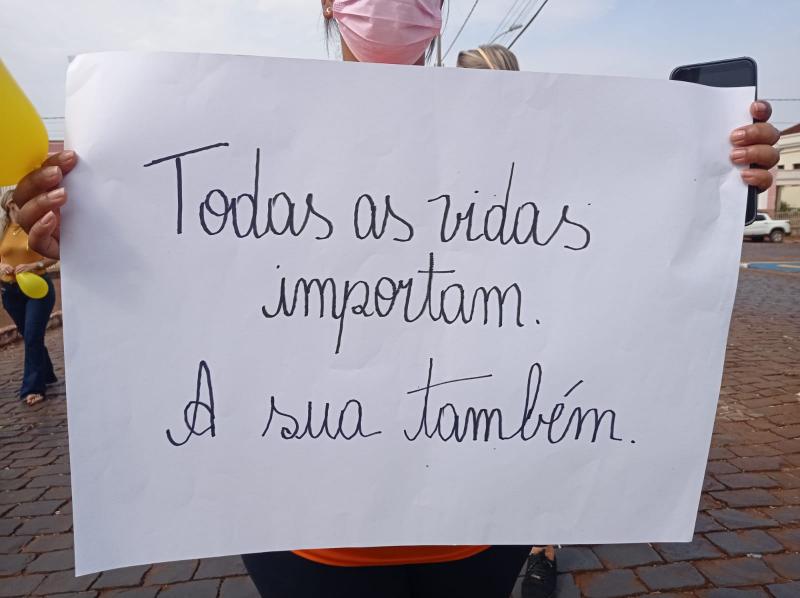 Todas as vidas
importam.
A sua também.